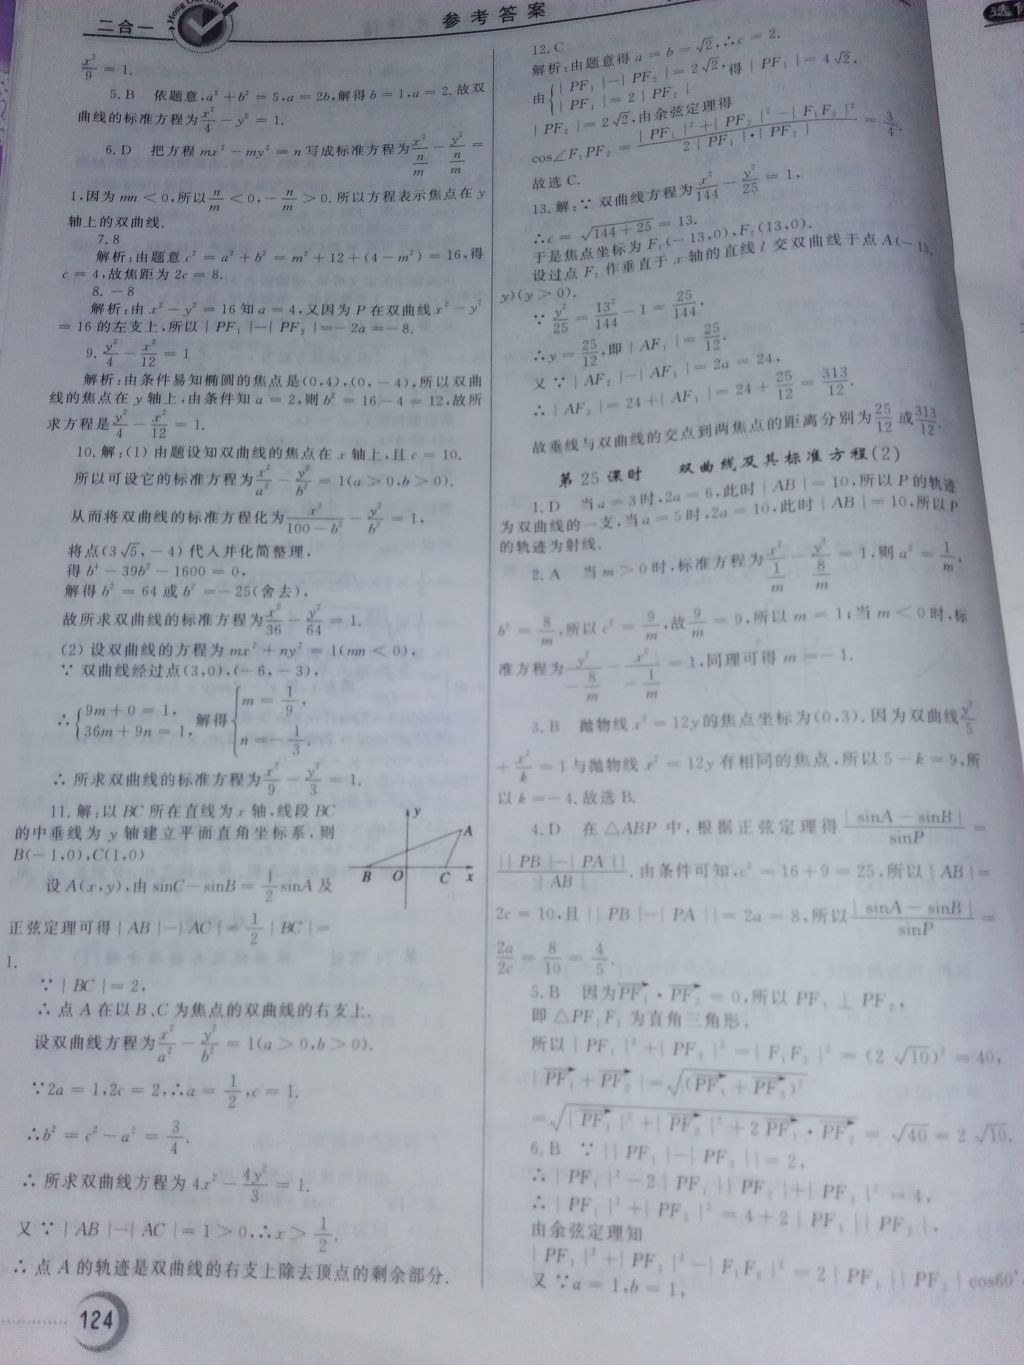 二合一
参考答案
x²/9 = 1.
5. B 依题意,a² + b² = 5,a = 2b,解得 b = 1,a = 2. 故双
曲线的标准方程为 x²/4 - y² = 1.
6. D 把方程 mx² - my² = n 写成标准方程为 x²/(n/m) - y²/(n/m) =
1,因为 mn < 0,所以 n/m < 0,- n/m > 0. 所以方程表示焦点在 y
轴上的双曲线.
7. 8
解析:由题意 c² = a² + b² = m² + 12 + (4 - m²) = 16,得
c = 4,故焦距为 2c = 8.
8. -8
解析:由 x² - y² = 16 知 a = 4,又因为 P 在双曲线 x² - y²
= 16 的左支上,所以 | PF₁ | - | PF₂ | = - 2a = - 8.
9. y²/4 - x²/12 = 1
解析:由条件易知椭圆的焦点是(0,4),(0,-4),所以双曲
线的焦点在 y 轴上,由条件知 a = 2,则 b² = 16 - 4 = 12,故所
求方程是 y²/4 - x²/12 = 1.
10. 解:(1) 由题设知双曲线的焦点在 x 轴上,且 c = 10.
所以可设它的标准方程为 x²/a² - y²/b² = 1(a > 0,b > 0).
从而将双曲线的标准方程化为 x²/(100 - b²) - y²/b² = 1,
将点(3√5,-4) 代入并化简整理,
得 b⁴ - 39b² - 1600 = 0,
解得 b² = 64 或 b² = - 25(舍去),
故所求双曲线的标准方程为 x²/36 - y²/64 = 1.
(2) 设双曲线的方程为 mx² + ny² = 1(mn < 0),
∵ 双曲线经过点(3,0),(-6,-3),
∴ {9m + 0 = 1, 36m + 9n = 1, 解得 {m = 1/9, n = - 1/3.
∴ 所求双曲线的标准方程为 x²/9 - y²/3 = 1.
11. 解:以 BC 所在直线为 x 轴,线段 BC
的中垂线为 y 轴建立平面直角坐标系,则
B(-1,0),C(1,0)
设 A(x,y),由 sinC - sinB = 1/2 sinA 及
正弦定理可得 | AB | - | AC | = 1/2 | BC | =
1.
y
A
B O C x
∵ | BC | = 2,
∴ 点 A 在以 B、C 为焦点的双曲线的右支上.
设双曲线方程为 x²/a² - y²/b² = 1(a > 0,b > 0).
∵ 2a = 1,2c = 2,∴ a = 1/2,c = 1.
∴ b² = c² - a² = 3/4.
∴ 所求双曲线方程为 4x² - 4y²/3 = 1.
又 ∵ | AB | - | AC | = 1 > 0,∴ x > 1/2.
∴ 点 A 的轨迹是双曲线的右支上除去顶点的剩余部分.
124
12. C
解析:由题意得 a = b = √2,∴ c = 2.
由 {| PF₁ | - | PF₂ | = 2√2, | PF₁ | = 2 | PF₂ | 得 | PF₁ | = 4√2,
| PF₂ | = 2√2,由余弦定理得
cos∠F₁PF₂ = (| PF₁ |² + | PF₂ |² - | F₁F₂ |²)/(2 | PF₁ | · | PF₂ |) = 3/4.
故选 C.
13. 解:∵ 双曲线方程为 x²/144 - y²/25 = 1,
∴ c = √(144 + 25) = 13.
于是焦点坐标为 F₁(-13,0),F₂(13,0).
设过点 F₁ 作垂直于 x 轴的直线 l 交双曲线于点 A(-13,
y)(y > 0).
∵ y²/25 = 13²/144 - 1 = 25/144,
∴ y = 25/12,即 | AF₁ | = 25/12.
又 ∵ | AF₂ | - | AF₁ | = 2a = 24,
∴ | AF₂ | = 24 + | AF₁ | = 24 + 25/12 = 313/12.
故垂线与双曲线的交点到两焦点的距离分别为 25/12 或 313/12.
第 25 课时 双曲线及其标准方程(2)
1. D 当 a = 3 时,2a = 6,此时 | AB | = 10,所以 P 的轨迹
为双曲线的一支,当 a = 5 时,2a = 10,此时 | AB | = 10,所以 P
的轨迹为射线.
2. A 当 m > 0 时,标准方程为 x²/(1/m) - y²/(8/m) = 1,则 a² = 1/m,
b² = 8/m,所以 c² = 9/m,故 9/m = 9,所以 m = 1;当 m < 0 时,标
准方程为 y²/(-8/m) - x²/(-1/m) = 1,同理可得 m = - 1.
3. B 抛物线 x² = 12y 的焦点坐标为(0,3). 因为双曲线 y²/5
+ x²/k = 1 与抛物线 x² = 12y 有相同的焦点,所以 5 - k = 9,所
以 k = - 4. 故选 B.
4. D 在 △ABP 中,根据正弦定理得 | sinA - sinB |/sinP =
|| PB | - | PA ||/| AB |. 由条件可知,c² = 16 + 9 = 25,所以 | AB | =
2c = 10,且 || PB | - | PA || = 2a = 8,所以 | sinA - sinB |/sinP =
2a/2c = 8/10 = 4/5.
5. B 因为 PF₁ · PF₂ = 0,所以 PF₁ ⊥ PF₂,
即 △PF₁F₂ 为直角三角形,
所以 | PF₁ |² + | PF₂ |² = | F₁F₂ |² = (2√10)² = 40,
| PF₁ + PF₂ | = √(PF₁ + PF₂)²
= √(| PF₁ |² + | PF₂ |² + 2 PF₁ · PF₂) = √40 = 2√10.
6. B ∵ || PF₁ | - | PF₂ || = 2,
∴ | PF₁ |² - 2 | PF₁ || PF₂ | + | PF₂ |² = 4,
∴ | PF₁ |² + | PF₂ |² = 4 + 2 | PF₁ || PF₂ |,
由余弦定理知
| PF₁ |² + | PF₂ |² - | F₁F₂ |² = 2 | PF₁ || PF₂ | cos60°
又 ∵ a = 1,b = 1,